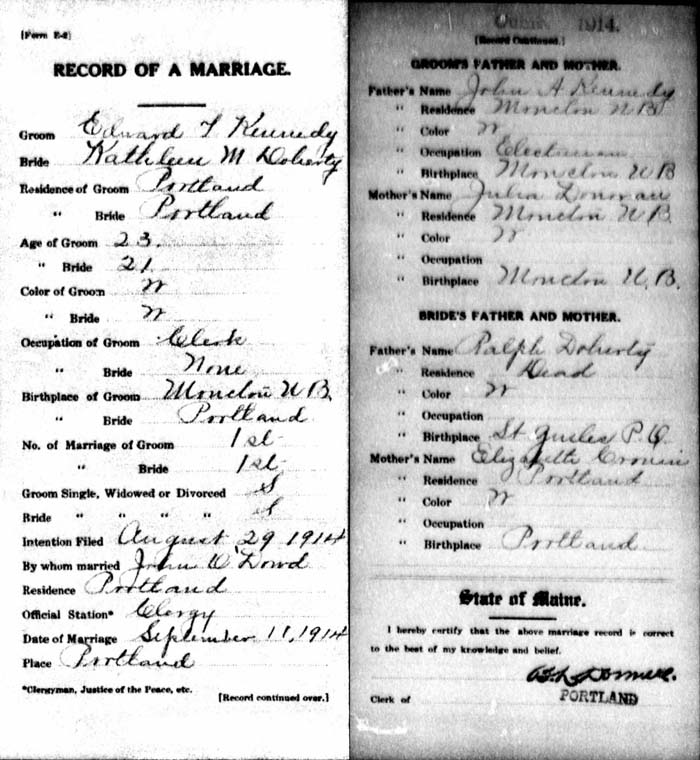 [Form E-2]
RECORD OF A MARRIAGE.
Groom Edward T Kennedy
Bride Kathleen M Doherty
Residence of Groom Portland
" Bride Portland
Age of Groom 23.
" Bride 21
Color of Groom W
" Bride W
Occupation of Groom Clerk
" Bride None
Birthplace of Groom Moncton N B.
" Bride Portland
No. of Marriage of Groom 1st
" Bride 1st
Groom Single, Widowed or Divorced S
Bride " " " " S
Intention Filed August 29 1914
By whom married John O'Dowd
Residence Portland
Official Station* Clergy
Date of Marriage September 11, 1914
Place Portland
*Clergyman, Justice of the Peace, etc.
[Record continued over.]
1914.
[Record Continued.]
GROOM'S FATHER AND MOTHER.
Father's Name John A Kennedy
" Residence Moncton N B
" Color W
" Occupation
" Birthplace Moncton N B
Mother's Name Julia Donovan
" Residence Moncton N B.
" Color W
" Occupation
" Birthplace Moncton N. B.
BRIDE'S FATHER AND MOTHER.
Father's Name Ralph Doherty
" Residence Dead
" Color W
" Occupation
" Birthplace St P. Q
Mother's Name Elizabeth Cronin
" Residence Portland
" Color W
" Occupation
" Birthplace Portland
State of Maine.
I hereby certify that the above marriage record is correct
to the best of my knowledge and belief.
Clerk of PORTLAND